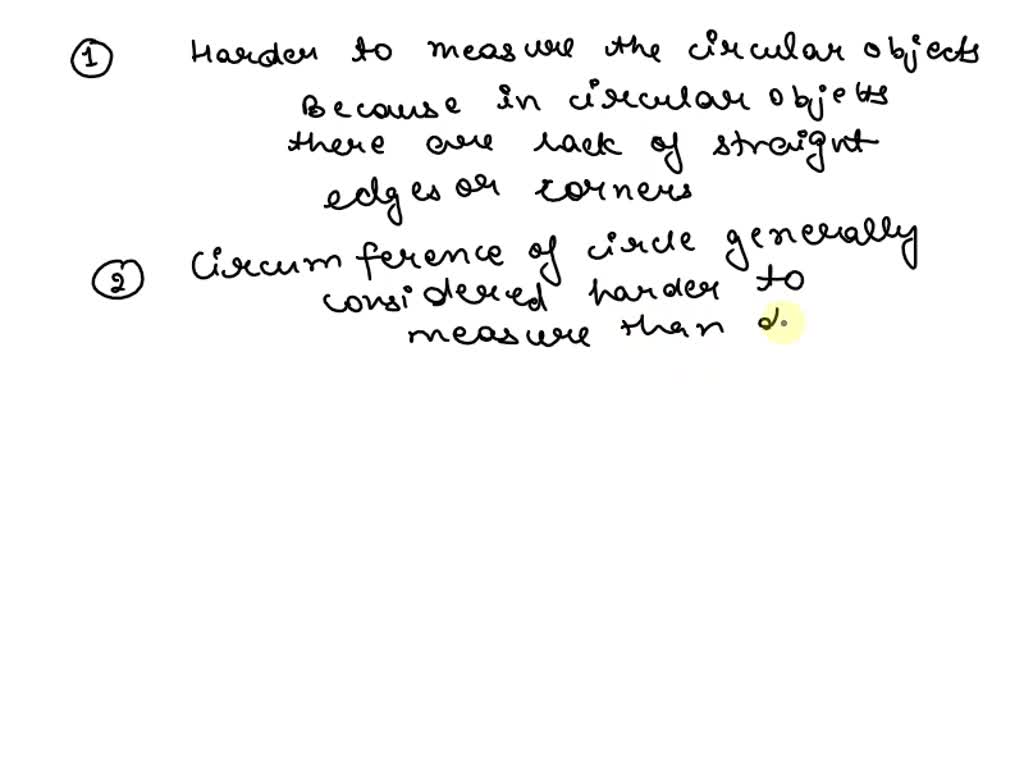 ① Harder to measure the circular objects
Because in circular objets
there are lack of straight
edges or corners
② Circumference of circle generally
considered harder to
measure than d